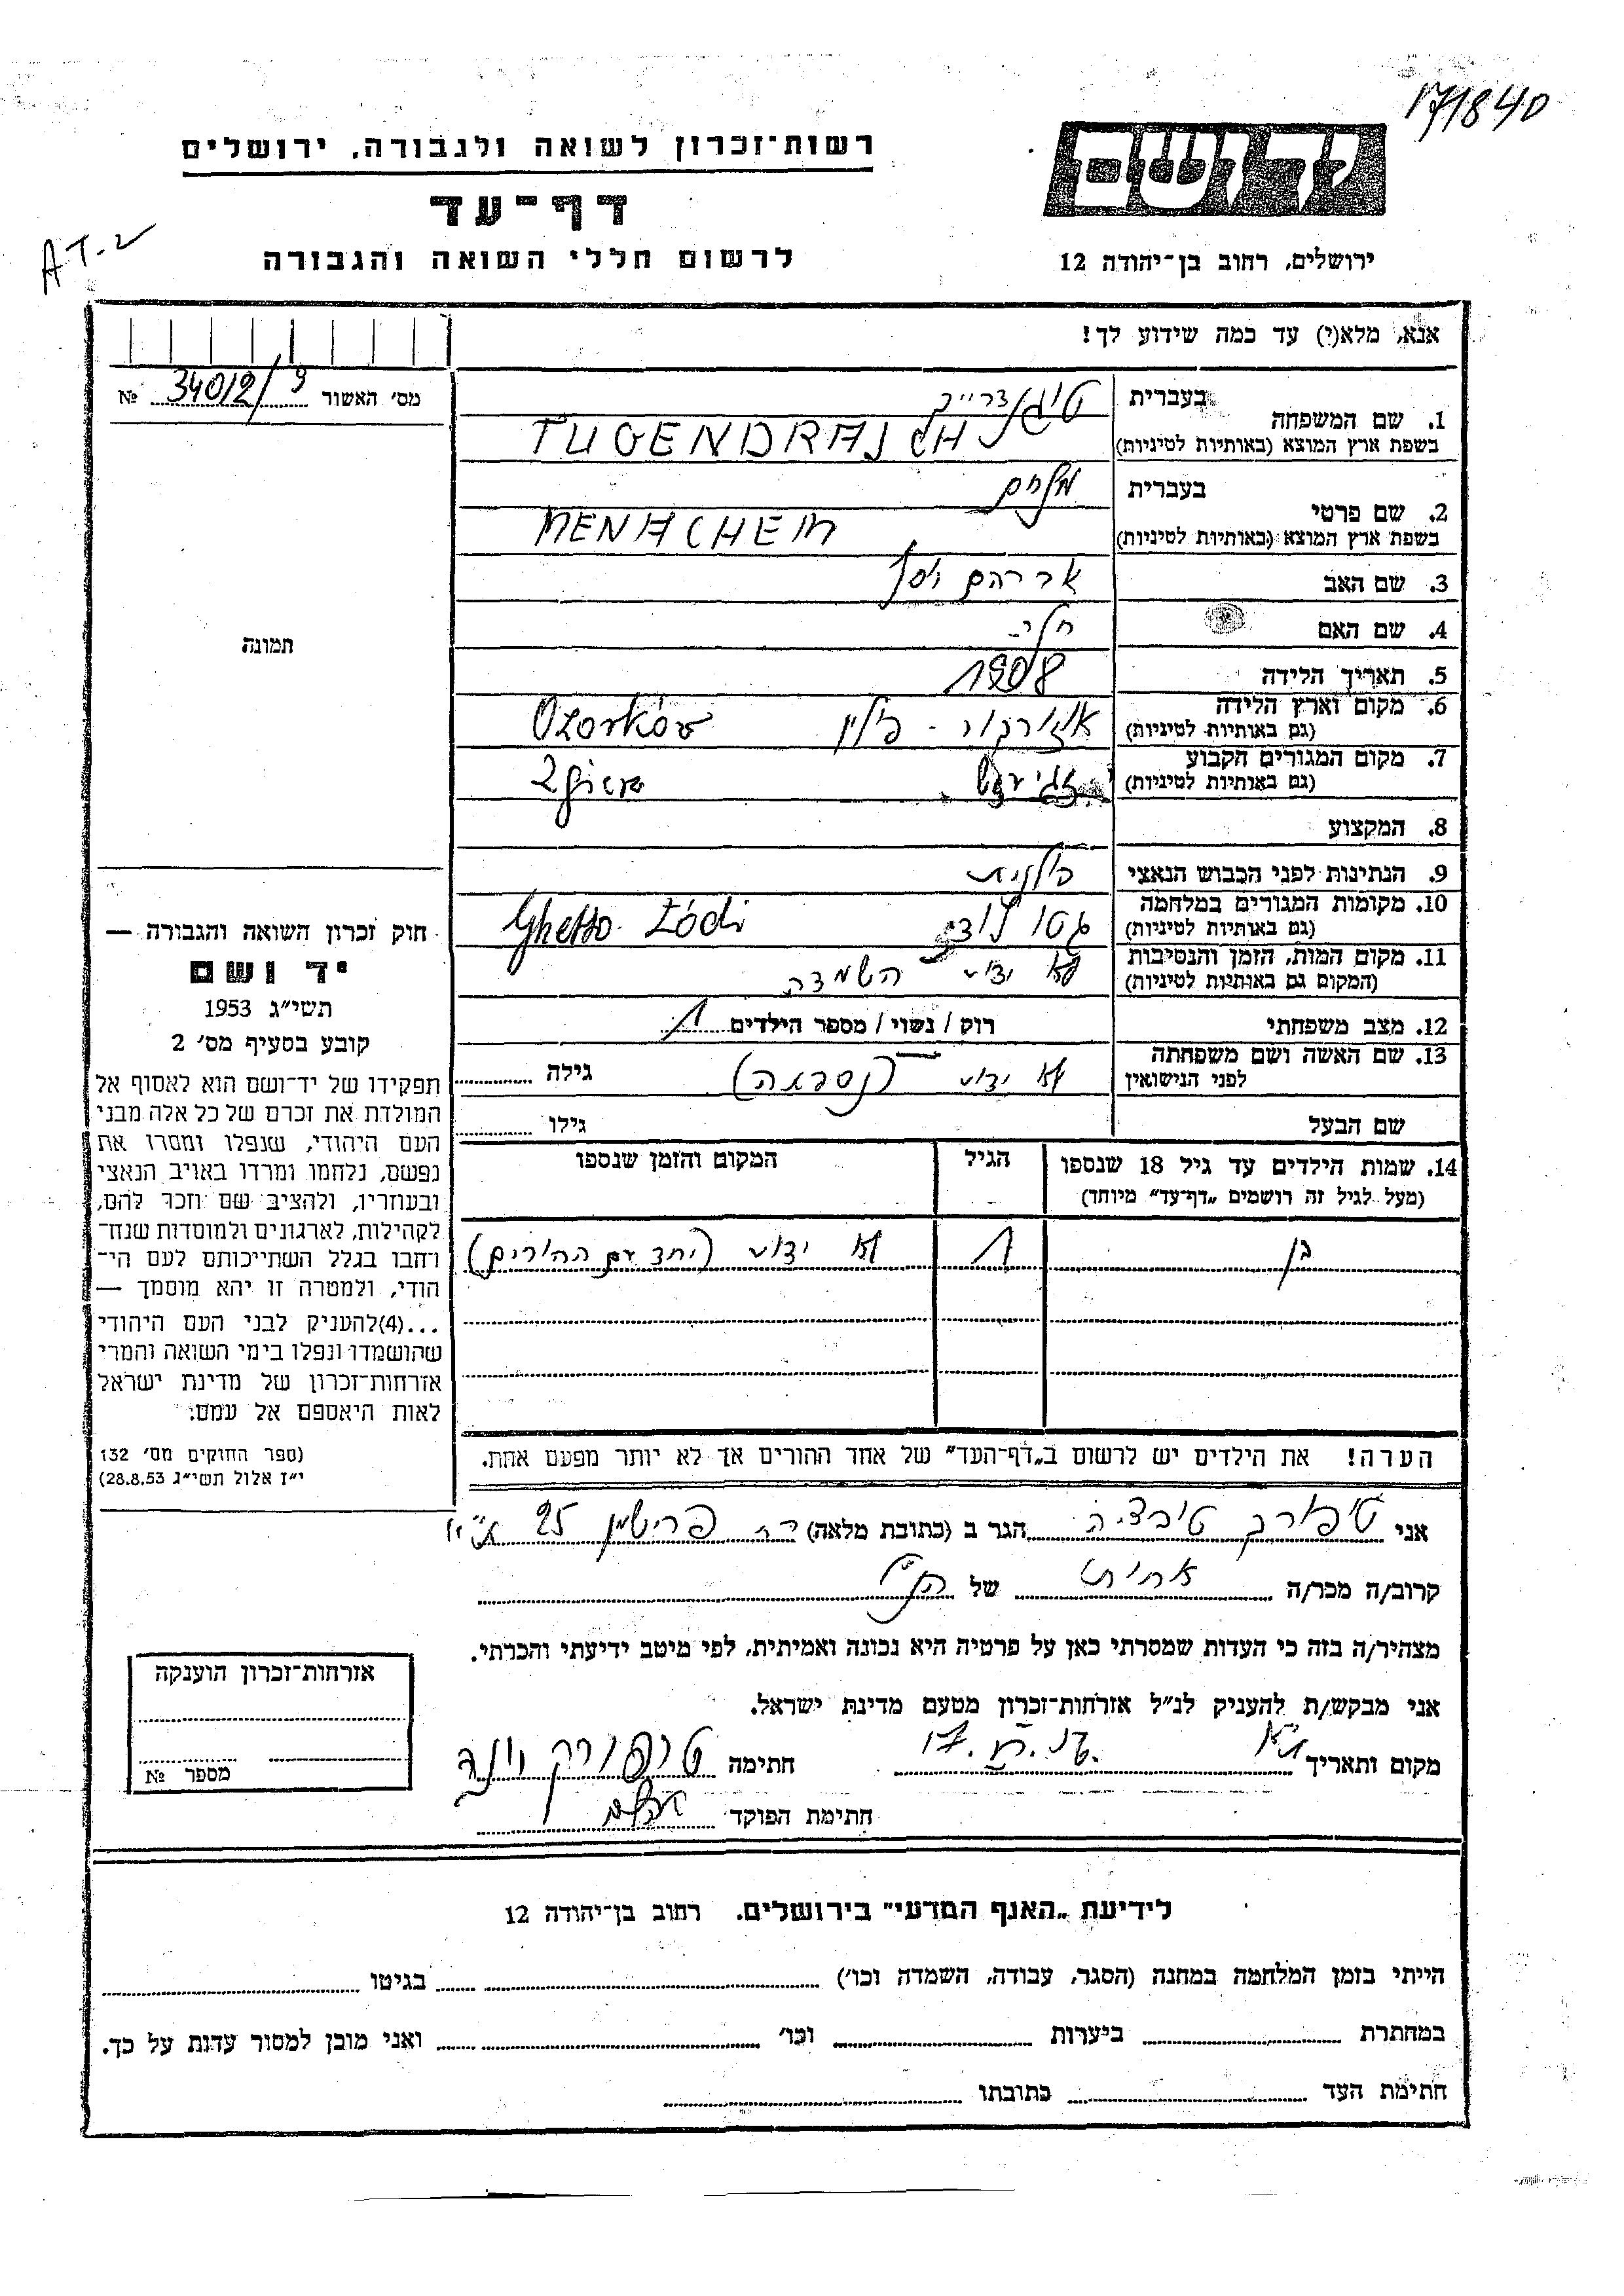 171840
רשות־זכרון לשואה ולגבורה, ירושלים
דף־עד
לרשום חללי השואה והגבורה
A T-2
יד ושם
ירושלים, רחוב בן־יהודה 12
אנא, מלא(י) עד כמה שידוע לך!
מס׳ האשור 34012/9 №
1. שם המשפחה
בעברית
בשפת ארץ המוצא (באותיות לטיניות) TUGENDRAJCH
2. שם פרטי
בעברית
בשפת ארץ המוצא (באותיות לטיניות) MENACHEM
3. שם האב אברהם יוסף
4. שם האם
5. תאריך הלידה 1908
6. מקום וארץ הלידה
(גם באותיות לטיניות) אוזורקוב - פולין Ozorków
7. מקום המגורים הקבוע
(גם באותיות לטיניות)
8. המקצוע
9. הנתינות לפני הכבוש הנאצי פולנית
10. מקומות המגורים במלחמה
(גם באותיות לטיניות) גטו לודז Ghetto Łódź
11. מקום המות, הזמן והנסיבות
(המקום גם באותיות לטיניות) לא ידוע השמדה
12. מצב משפחתי רוק / נשוי / מספר הילדים 1
13. שם האשה ושם משפחתה
לפני הנישואין לא ידוע (נספתה) גילה
שם הבעל גילו
14. שמות הילדים עד גיל 18 שנספו
(מעל לגיל זה רושמים „דף־עד״ מיוחד)
הגיל
המקום והזמן שנספו
בן 1 לא ידוע (יחד עם ההורים)
הערה! את הילדים יש לרשום ב„דף־העד״ של אחד ההורים אך לא יותר מפעם אחת.
תמונה
חוק זכרון השואה והגבורה —
יד ושם
תשי״ג 1953
קובע בסעיף מס׳ 2
תפקידו של יד־ושם הוא לאסוף אל
המולדת את זכרם של כל אלה מבני
העם היהודי, שנפלו ומסרו את
נפשם, נלחמו ומרדו באויב הנאצי
ובעוזריו, ולהציב שם וזכר להם,
לקהילות, לארגונים ולמוסדות שנח־
רחבו בגלל השתייכותם לעם הי־
הודי, ולמטרה זו יהא מוסמך —
...(4)להעניק לבני העם היהודי
שהושמדו ונפלו בימי השואה והמרי
אזרחות־זכרון של מדינת ישראל
לאות היאספם אל עמם:
(ספר החוקים מס׳ 132
י״ז אלול תשי״ג 28.8.53)
אני הגר ב (כתובת מלאה) רח פרישמן 25 ת״א
קרוב/ה מכר/ה אחות של הנ״ל
מצהיר/ה בזה כי העדות שמסרתי כאן על פרטיה היא נכונה ואמיתית, לפי מיטב ידיעתי והכרתי.
אני מבקש/ת להעניק לנ״ל אזרחות־זכרון מטעם מדינת ישראל.
מקום ותאריך ת״א חתימה
חתימת הפוקד
אזרחות־זכרון הוענקה
מספר №
לידיעת „האנף המדעי״ בירושלים. רחוב בן־יהודה 12
הייתי בזמן המלחמה במחנה (הסגר, עבודה, השמדה וכו׳) בגיטו
במחתרת ביערות וכו׳ ואני מוכן למסור עדות על כך.
חתימת העד כתובתו